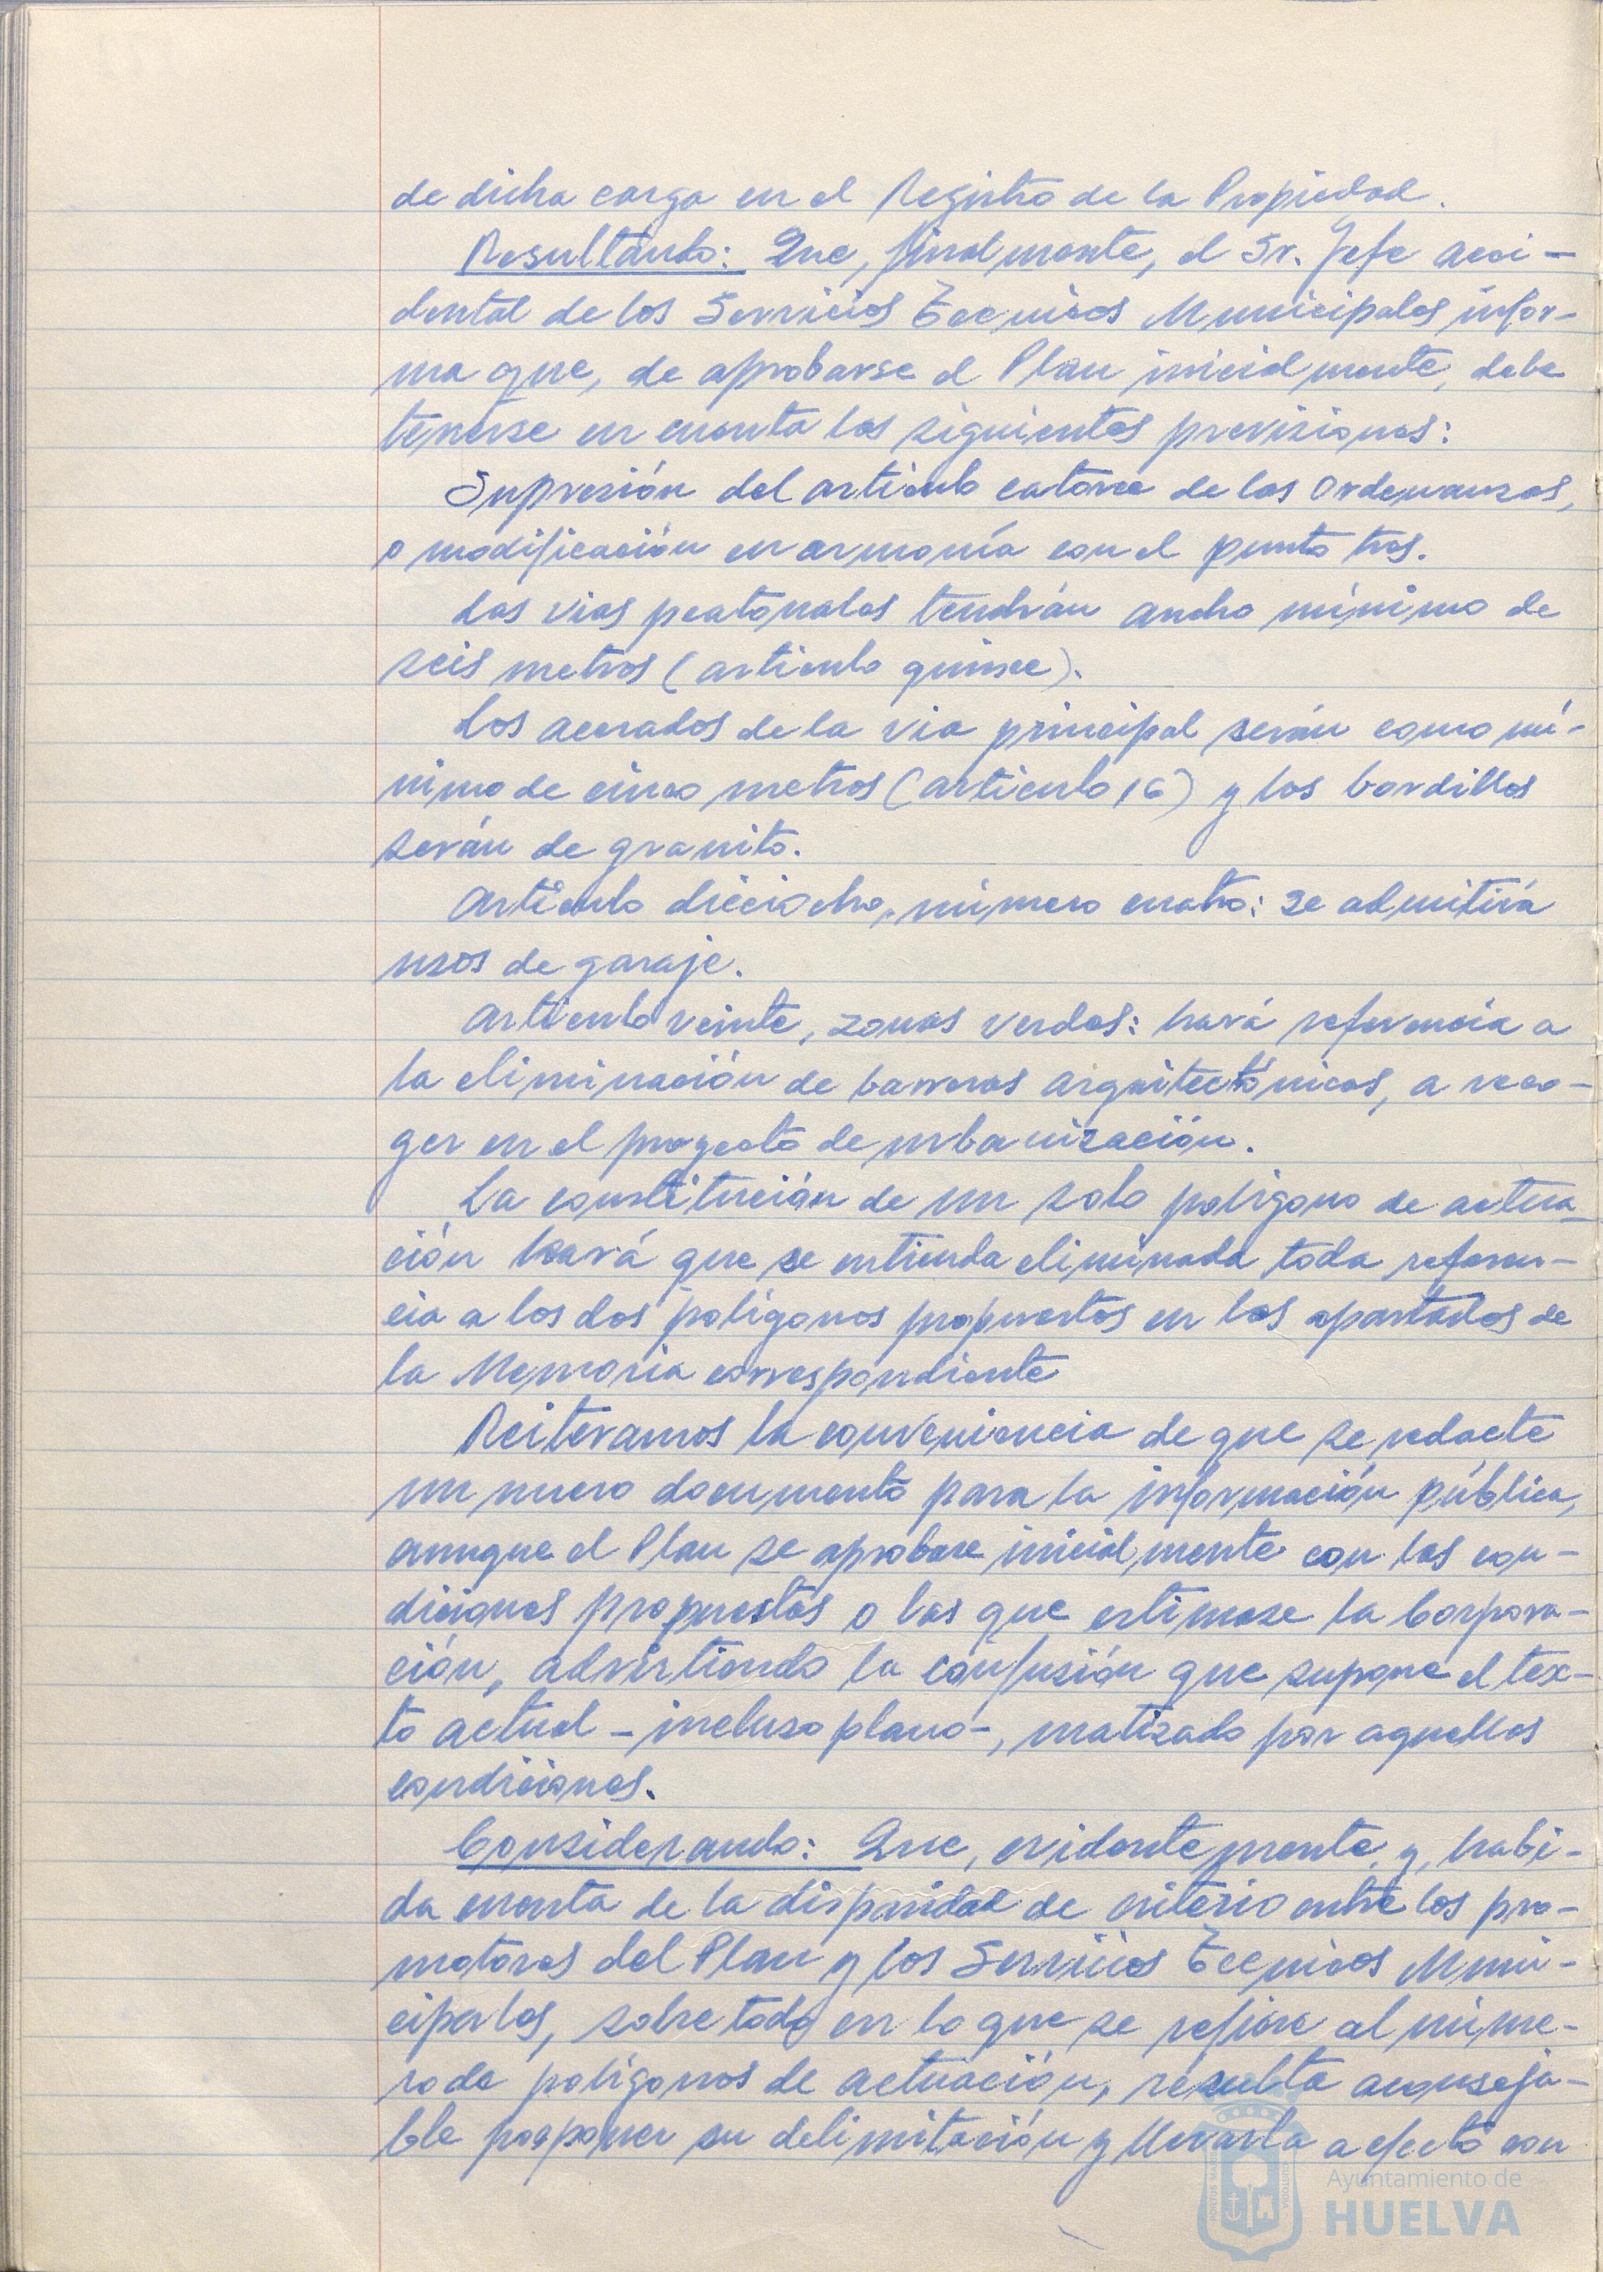 de dicha carga en el Registro de la Propiedad.
Resultando: Que, finalmente, el Sr. Jefe acci-
dental de los Servicios Tecnicos Municipales infor-
ma que, de aprobarse el Plan inicialmente, debe
tenerse en cuenta las siguientes previsiones:
Supresión del articulo catorce de las Ordenanzas,
o modificación en armonía con el punto tres.
Las vias peatonales tendrán ancho mínimo de
seis metros (articulo quince).
Los acerados de la via principal serán como mí-
nimo de cinco metros (articulo 16) y los bordillos
serán de granito.
Articulo dieciocho, número cuatro: se admitirá
usos de garaje.
Articulo veinte, zonas verdes: hará referencia a
la eliminación de barreras arquitectónicas, a reco-
ger en el proyecto de urbanización.
La constitución de un solo polígono de actua-
ción hará que se entienda eliminada toda referen-
cia a los dos polígonos propuestos en los apartados de
la Memoria correspondiente
Reiteramos la conveniencia de que se redacte
un nuevo documento para la información pública,
aunque el Plan se aprobase inicialmente con las con-
diciones propuestas o las que estimase la Corpora-
ción, advirtiendo la confusión que supone el tex-
to actual - incluso plano -, matizado por aquellas
condiciones.
Considerando: Que, evidentemente, y, habi-
da cuenta de la disparidad de criterio entre los pro-
motores del Plan y los Servicios Tecnicos Muni-
cipales, sobre todo en lo que se refiere al núme-
ro de polígonos de actuación, resulta aconseja-
ble posponer su delimitación y llevarla a efecto con
Ayuntamiento de
HUELVA